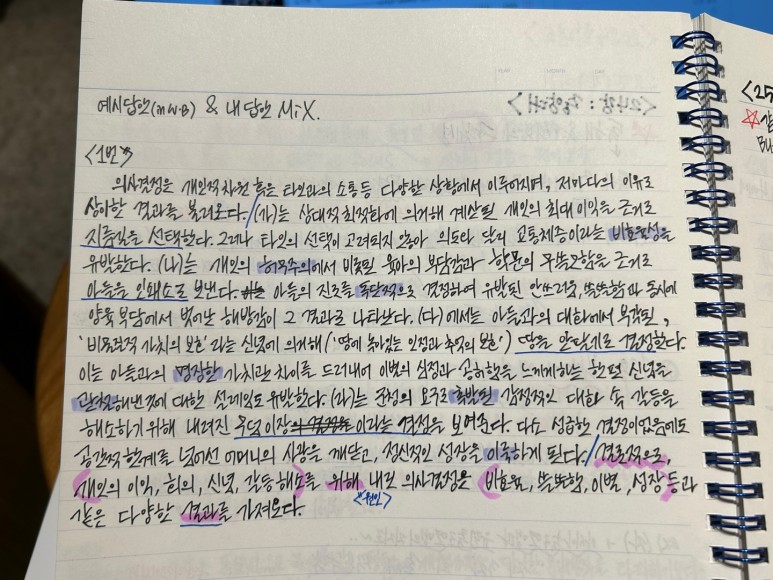 예시답안(mw.B) & 내 답안 Mix.
<1번>
의사결정은 개인적 차원 혹은 타인과의 소통 등 다양한 상황에서 이루어지며, 저마다의 이유로
상이한 결과를 불러온다. / (가)는 상대적 최적화에 의거해 계산된 개인의 최대 이익을 근거로
지름길을 선택한다. 그러나 타인의 선택이 고려되지 않아 의도와 달리 교통체증이라는 비효율성을
유발한다. (나)는 개인의 허무주의에서 비롯된 육아의 부담감과 학문의 무쓸모함을 근거로
아들을 인쇄소로 보낸다. 아들의 진로를 독단적으로 결정하여 유발된 안쓰러움, 쓸쓸함과 동시에
양육 부담에서 벗어난 해방감이 그 결과로 나타난다. (다)에서는 아들과의 대화에서 부각된,
'비물질적 가치의 보존'라는 신념에 의거해 ('땅에 녹아있는 인정과 추억의 보존') 땅을 안 팔기로 결정한다.
이는 아들과의 명징한 가치관 차이를 드러내어 이별의 심정과 공허함을 느끼게하는 한편 신념을
관철해낸 것에 대한 설레임도 유발한다. (라)는 순정의 요구로 촉발된 감정적인 대화 속 갈등을
해소하기 위해 내려진 무덤 이장 이라는 결정을 보여준다. 다소 성급한 결정이었음에도
공간적 한계를 넘어선 어머니의 사랑을 깨닫고, 정신적인 성장을 이룩하게 된다. / 결론적으로,
개인의 이익, 회의, 신념, 갈등 해소를 위해 내린 의사결정은 비효율, 쓸쓸함, 이별, 성장 등과
<원인>
같은 다양한 결과를 가져온다.
<25